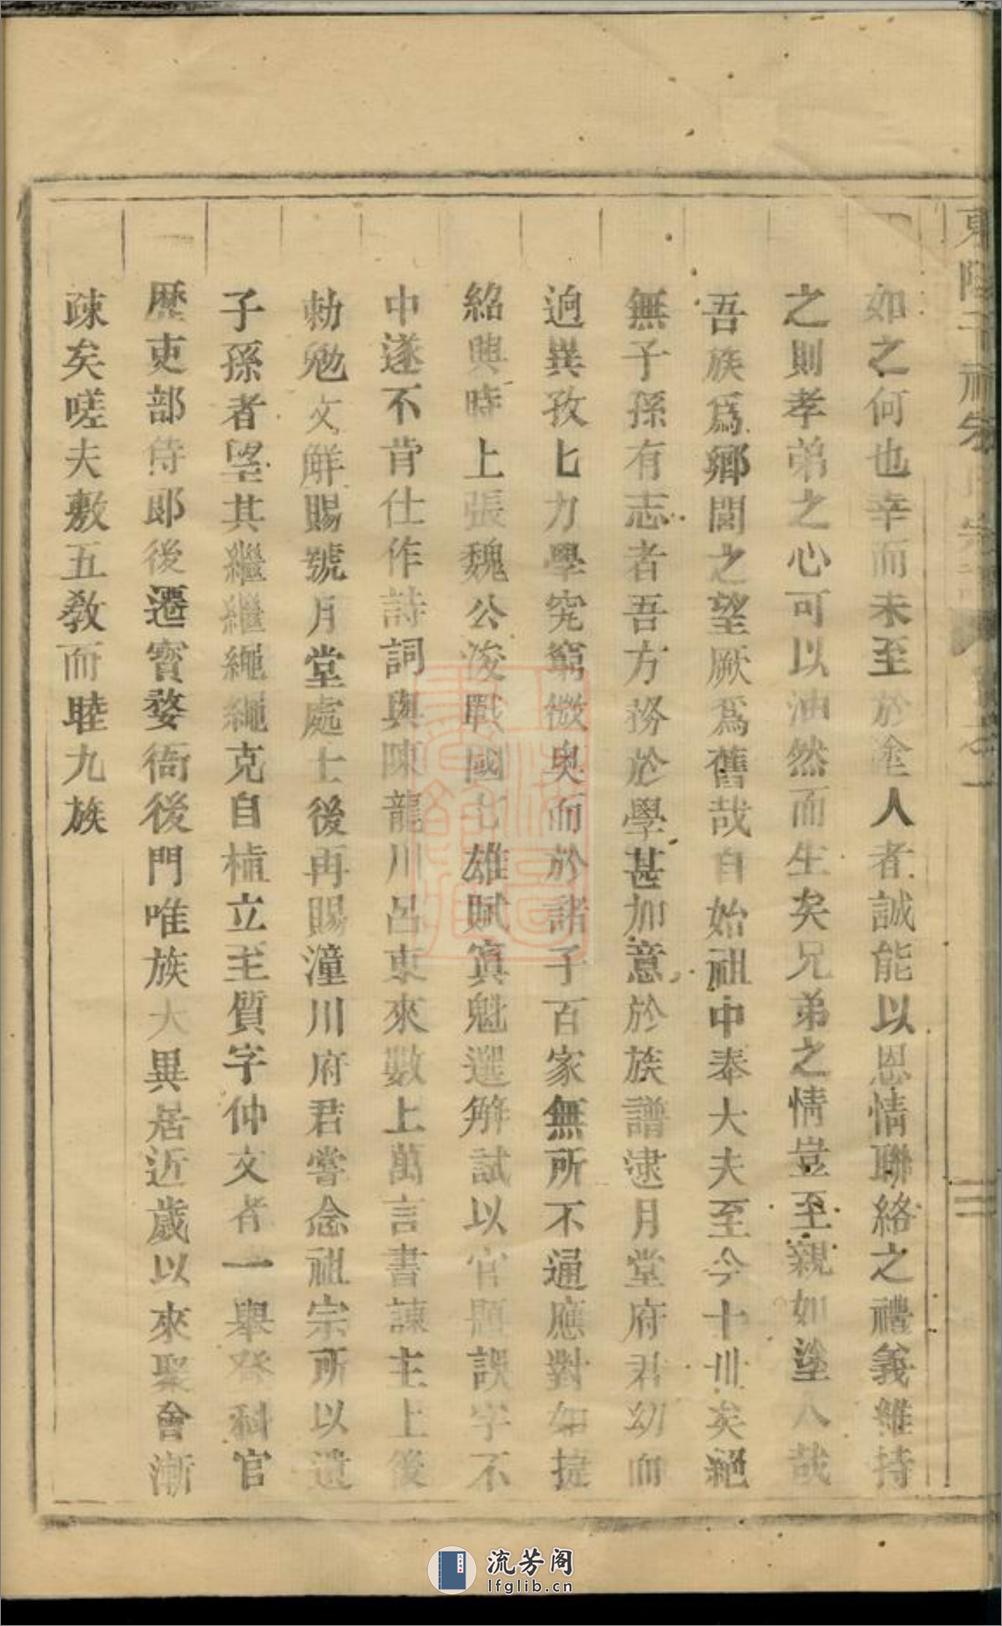 如之何也幸而未至於塗人者誠能以恩情聯絡之禮義維持
之則孝弟之心可以油然而生矣兄弟之情豈至親如塗人哉
吾族爲鄉閭之望厥爲舊哉自始祖中奉大夫至今十世矣絕
無子孫有志者吾方務於學甚加意於族譜逮月堂府君幼而
逈異孜匕力學究窮微奥而於諸子百家無所不通應對如捷
紹興時上張魏公浚戰國七雄賦寘魁選解試以官題誤字不
中遂不肯仕作詩詞與陳龍川呂東來數上萬言書諫主上後
勅勉文解賜號月堂處士後再賜潼川府君嘗念祖宗所以遺
子孫者望其繼繼繩繩克自植立至質字仲文者一舉登科官
歷吏部侍郎後遷寳婺衙後門唯族大異居近歲以來聚會漸
疎矣嗟夫敷五敎而睦九族
流芳阁
lfglib.cn